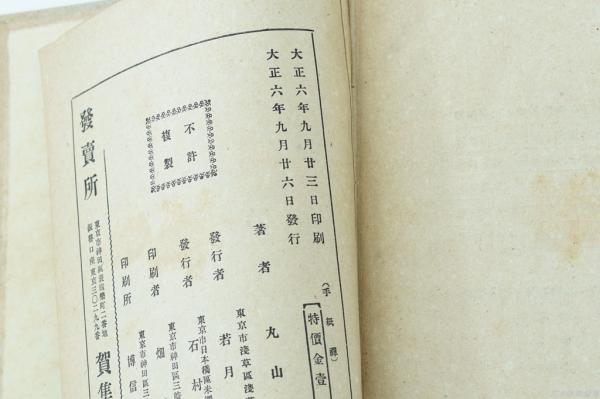 大正六年九月廿三日印刷
大正六年九月廿六日發行
(手紙雜)
特價金壹
不許
複製
著者 丸山
東京市淺草區淺
發行者 若月
東京市日本橋區米
發行者 石村
東京市神田區三
印刷者 畑
東京市神田區三
印刷所 博信
發賣所
東京市神田區
東京三〇二九九番
賀集